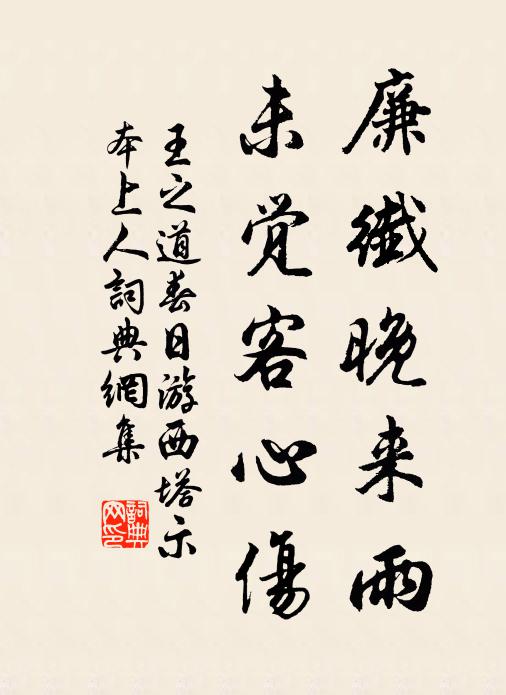 廉纖晚来雨
未觉客心傷
王之道春日游西塔示
本上人詞典網集
詞典网印